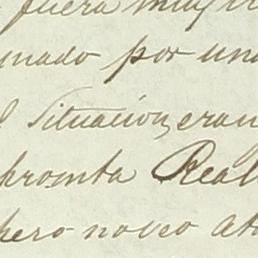 fuera muy
nado por una
Situacion, eran
pronta Real
pero no veo